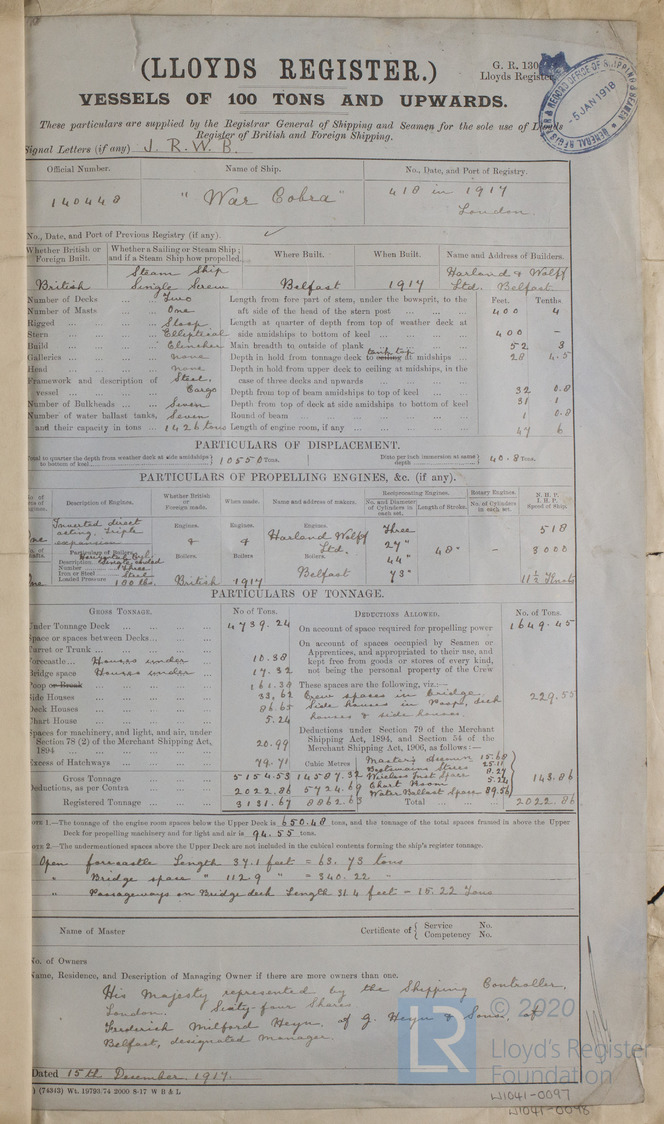 (LLOYDS REGISTER.)
G. R. 130
Lloyds Register
VESSELS OF 100 TONS AND UPWARDS.
- 5 JAN 1918
These particulars are supplied by the Registrar General of Shipping and Seamen for the sole use of Lloyds
Register of British and Foreign Shipping.
Signal Letters (if any) J. R. W. B.
Official Number. Name of Ship. No., Date, and Port of Registry.
140448 "War Cobra" 418 in 1917
London
No., Date, and Port of Previous Registry (if any).
Whether British or Foreign Built. Whether a Sailing or Steam Ship; and if a Steam Ship how propelled. Where Built. When Built. Name and Address of Builders.
British Steam Ship Single Screw Belfast 1917 Harland & Wolff Ltd. Belfast
Number of Decks ... Two Length from fore part of stem, under the bowsprit, to the Feet. Tenths.
Number of Masts ... One aft side of the head of the stern post ... 400 4
Rigged ... Sloop Length at quarter of depth from top of weather deck at
Stern ... Elliptical side amidships to bottom of keel ... 400 -
Build ... Clincher Main breadth to outside of plank ... 52 3
Galleries ... none Depth in hold from tonnage deck to ceiling tank top at midships ... 28 4.5
Head ... none Depth in hold from upper deck to ceiling at midships, in the
Framework and description of Steel. case of three decks and upwards
vessel ... Cargo Depth from top of beam amidships to top of keel ... 32 0.8
Number of Bulkheads ... Seven Depth from top of deck at side amidships to bottom of keel 31 1
Number of water ballast tanks, Seven Round of beam ... 1 0.8
and their capacity in tons ... 1426 tons Length of engine room, if any ... 47 6
PARTICULARS OF DISPLACEMENT.
Total to quarter the depth from weather deck at side amidships to bottom of keel 10550 Tons. Ditto per inch immersion at same depth 40.8 Tons.
PARTICULARS OF PROPELLING ENGINES, &c. (if any).
Description of Engines. Whether British or Foreign made. When made. Name and address of makers. Reciprocating Engines. Rotary Engines. N. H. P. I. H. P. Speed of Ship.
No. and Diameter of Cylinders in each set. Length of Stroke. No. of Cylinders in each set.
Inverted direct acting, triple expansion Engines. Engines. Engines.
Harland & Wolff Ltd. Belfast
Three 27" 44" 73" 48" - 518 3000
Particulars of Boilers. Boilers Boilers Boilers.
Description Single ended
Number Three
Iron or Steel Steel
Loaded Pressure 180 lbs. British 1917 11 1/2 Knots
PARTICULARS OF TONNAGE.
GROSS TONNAGE. No of Tons. DEDUCTIONS ALLOWED. No. of Tons.
Under Tonnage Deck ... 4739.24 On account of space required for propelling power 1649.45
Space or spaces between Decks... On account of spaces occupied by Seamen or
Turret or Trunk ... Apprentices, and appropriated to their use, and
Forecastle... Houses under ... 10.38 kept free from goods or stores of every kind,
Bridge space Houses under ... 17.32 not being the personal property of the Crew
Poop or Break ... 161.39 These spaces are the following, viz.:—
Side Houses ... 33.62 Crew spaces in bridge 229.55
Deck Houses ... 86.65 Side houses in Poop, deck
Chart House ... 5.24 houses & side houses.
Spaces for machinery, and light, and air, under Deductions under Section 79 of the Merchant
Section 78 (2) of the Merchant Shipping Act, Shipping Act, 1894, and Section 54 of the
1894 ... 20.99 Merchant Shipping Act, 1906, as follows:—
Excess of Hatchways ... 79.71 Cubic Metres
Master's accomm 15.68
Boatswains Stores 25.11
Wireless Inst Space 8.27
Chart Room 5.24
Water Ballast Space 89.56
143.86
Gross Tonnage ... 5154.53 14587.32
Deductions, as per Contra 2022.86 5724.69
Registered Tonnage ... 3131.67 8862.63 Total ... 2022.86
NOTE 1.—The tonnage of the engine room spaces below the Upper Deck is 650.48 tons, and the tonnage of the total spaces framed in above the Upper
Deck for propelling machinery and for light and air is 94.55 tons.
NOTE 2.—The undermentioned spaces above the Upper Deck are not included in the cubical contents forming the ship's register tonnage.
Open forecastle Length 37.1 feet = 63.73 tons
" Bridge space " 112.9 " = 340.22 "
" Passageways on Bridge deck Length 31.4 feet = 15.22 Tons
Name of Master Certificate of { Service No.
Competency No.
No. of Owners
Name, Residence, and Description of Managing Owner if there are more owners than one.
His Majesty represented by the Shipping Controller,
London. Sixty-four Shares
Frederick Milford Heyn, of G. Heyn & Sons, of
Belfast, designated manager.
Dated 15th December 1917.
(74343) Wt. 19793/74 2000 8-17 W B & L
LR
© 2020
Lloyd's Register
Foundation
W1041-0097
W1041-0098